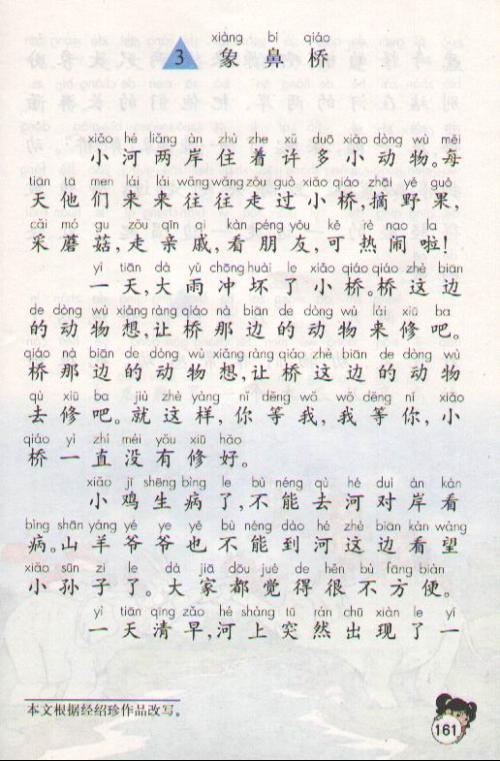 xiàng bí qiáo
3 象鼻桥
xiǎo hé liǎng àn zhù zhe xǔ duō xiǎo dòng wù měi
小河两岸住着许多小动物。每
tiān tā men lái lái wǎng wǎng zǒu guò xiǎo qiáo zhāi yě guǒ
天他们来来往往走过小桥,摘野果,
cǎi mó gu zǒu qīn qi kàn péng yǒu kě rè nao la
采蘑菇,走亲戚,看朋友,可热闹啦!
yì tiān dà yǔ chōng huài le xiǎo qiáo qiáo zhè biān
一天,大雨冲坏了小桥。桥这边
de dòng wù xiǎng ràng qiáo nà biān de dòng wù lái xiū ba
的动物想,让桥那边的动物来修吧。
qiáo nà biān de dòng wù xiǎng ràng qiáo zhè biān de dòng wù
桥那边的动物想,让桥这边的动物
qù xiū ba jiù zhè yàng nǐ děng wǒ wǒ děng nǐ xiǎo
去修吧。就这样,你等我,我等你,小
qiáo yì zhí méi yǒu xiū hǎo
桥一直没有修好。
xiǎo jī shēng bìng le bù néng qù hé duì àn kàn
小鸡生病了,不能去河对岸看
bìng shān yáng yé ye yě bù néng dào hé zhè biān kàn wàng
病。山羊爷爷也不能到河这边看望
xiǎo sūn zi le dà jiā dōu jué de hěn bù fāng biàn
小孙子了。大家都觉得很不方便。
yì tiān qīng zǎo hé shàng tū rán chū xiàn le yí
一天清早,河上突然出现了一
本文根据经绍珍作品改写。
161